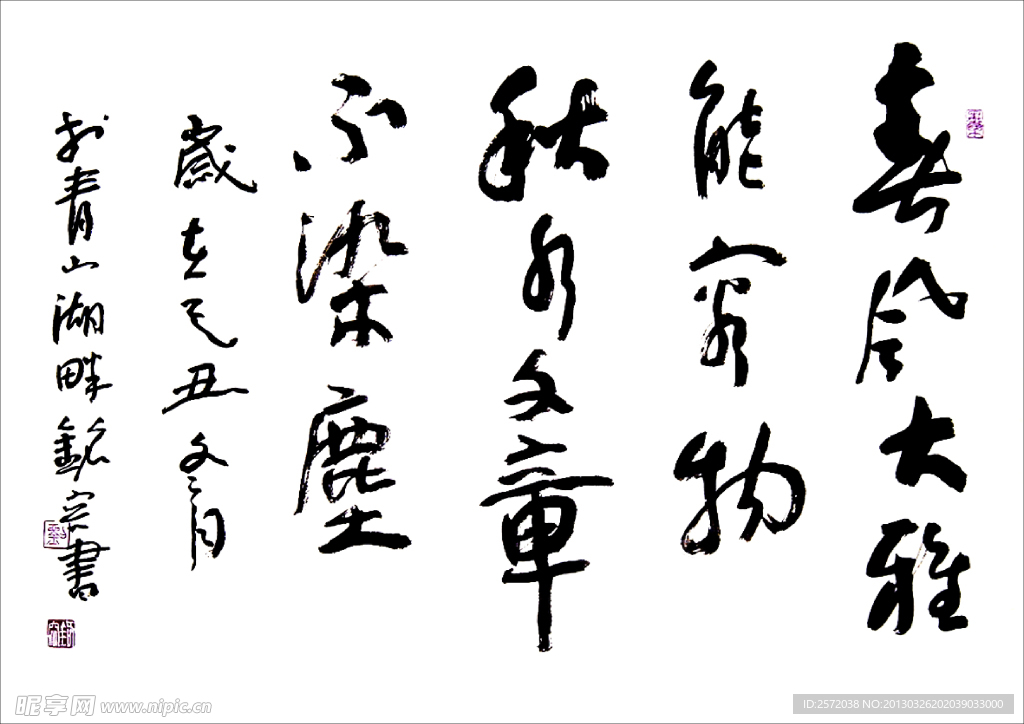 春風大雅
能容物
秋水文章
不染塵
歲在己丑冬月
於青山湖畔銘書
昵享网 www.nipic.cn
ID:2572038 NO:20130326202039033000